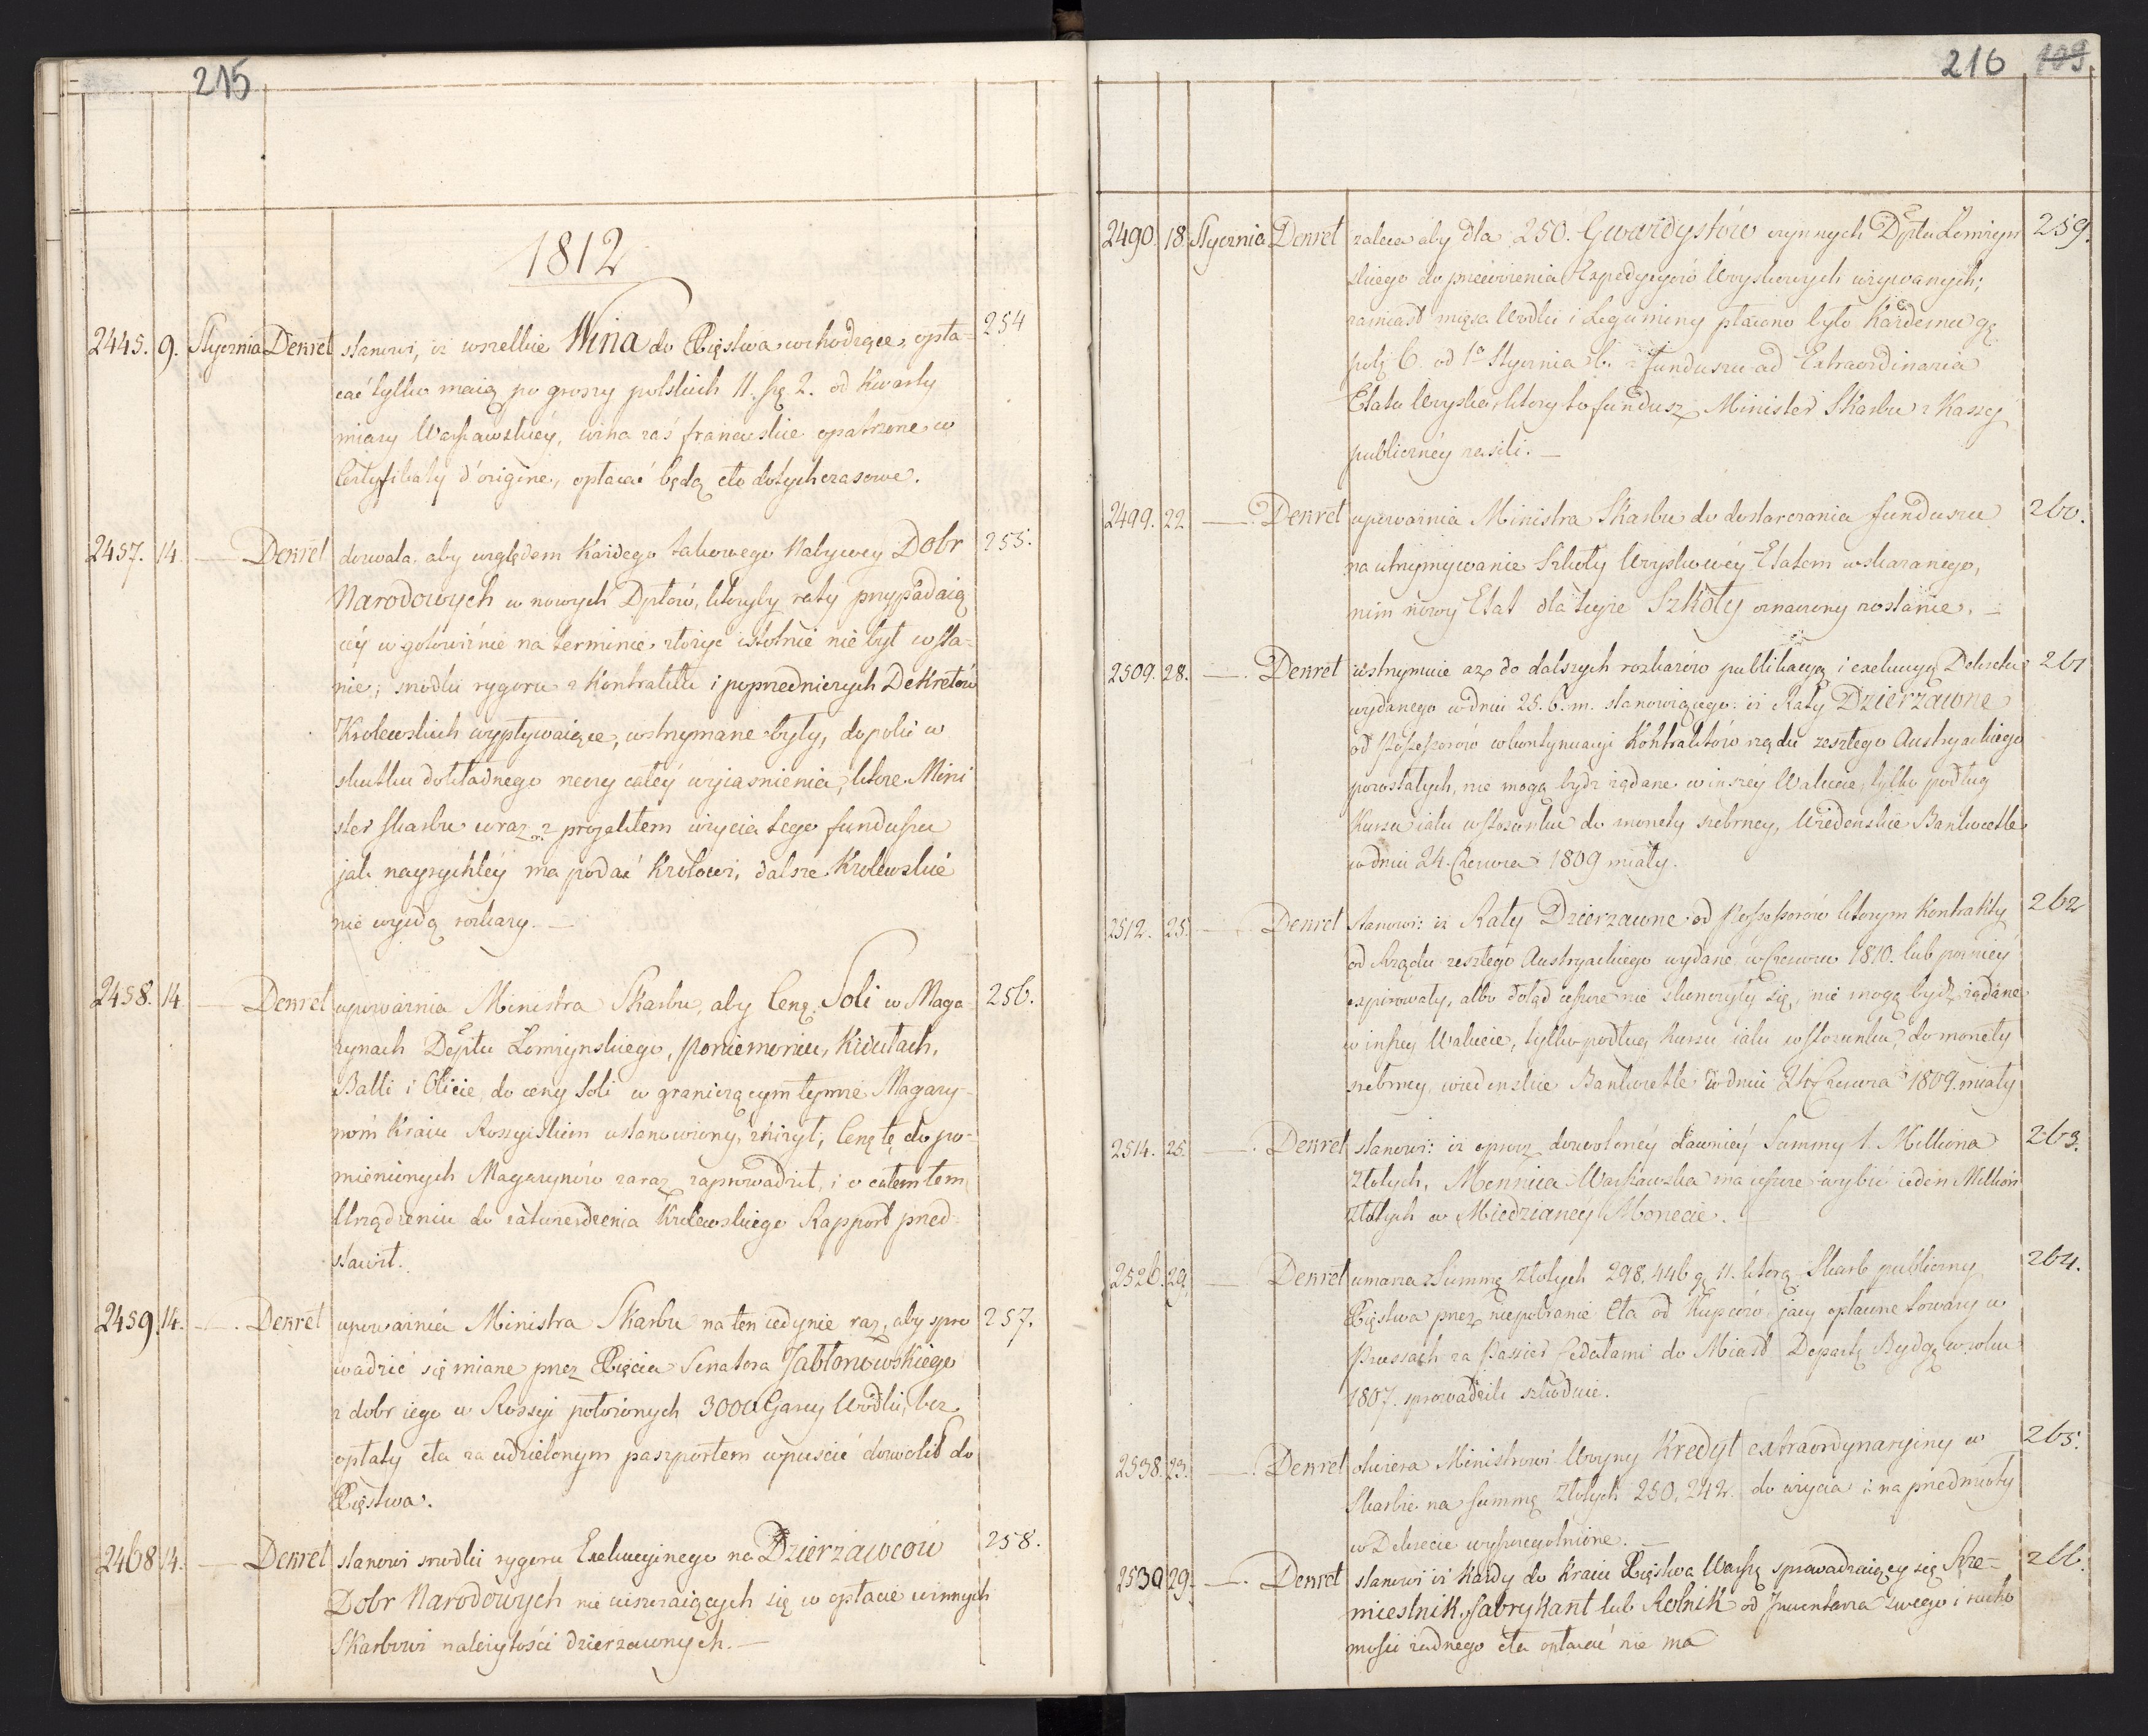 215
1812
2445. 9. Stycznia Dekret stanowi, iż wszelkie Wina do Xięstwa wchodzące, opła- 254
cać tylko maią po groszy polskich 11. szę 2. od kwarty
miary Warszawskiéy, wina zaś francuskie opatrzone w
Certyfikaty d'origine, opłacać będą cło dotychczasowe.
2457. 14. — Dekret dozwala, aby względem każdego takowego Nabywcy Dobr 255.
Narodowych w nowych Dptów, któryby raty przypadaią
céy w gotowiźnie na terminie złożyć istotnie nie był w sta-
nie; srodki rygoru z kontraktu i poprzedniczych Dekretów
Krolewskich wypływaiące, wstrzymane były, dopóki w
skutku dokładnego rzeczy całéy wyiasnienia, które Mini
ster skarbu wraz z projektem użycia tego funduszu
jak nayrychléy ma podać Królowi, dalsze Krolewskie
nie wyjdą rozkazy. —
2458. 14. — Dekret upoważnia Ministra Skarbu, aby Cenę Soli w Maga- 256.
zynach Deptu Łomżynskiego, Poniemoniu, Kidulach,
Balli i Olicie, do ceny Soli w graniczącym tymże Magazy-
nóm Kraiu Rossyiskiem ustanowiony, zniżył; Cenę tę do po-
mienionych Magazynów zaraz zaprowadził, i o całem tem
Urządzeniu do zatwierdzenia Krolewskiego Rapport przed-
stawił.
2459. 14. — Dekret upoważnia Ministra Skarbu na ten iedynie raz, aby spro 257.
wadzić się miane przez Xięcia Senatora Jabłonowskiego
z dobr iego w Rossyi położonych 3000 Garcy Wódki, bez
opłaty cła za udzielonym paszportem wpuscić dozwolił do
Xięstwa.
2468 14. — Dekret stanowi srodki rygoru Exekucyinego na Dzierzawcow 258.
Dobr Narodowych nie uiszczaiących się w opłacie winnych
Skarbowi należytości dzierzawnych. —
216 109.
2490. 18. Stycznia Dekret zaleca aby dla 250. Gwardystów czynnych Dptu Łomżyń 259.
skiego do przewożenia Expedycyów Woyskowych używanych,
zamiast mięsa Wodki i Leguminy płacono było każdemu gę
polę 6. od 1º Stycznia b. z funduszu ad Extraordinaria
Etatu Woyska, który to fundusz Minister Skarbu z Kassy
publicznéy zasili. —
2499. 22. — Dekret upoważnia Ministra Skarbu do dostarczania funduszu 260.
na utrzymywanie Szkoły Woyskowéy Etatem wskazanego,
nim nowy Etat dla teyże Szkoły oznaczony zostanie. —
2509. 28. — Dekret wstrzymuie aż do dalszych rozkazów publikacyą i exekucyą Dekretu 261
wydanego w dniu 25. b. m. stanowiącego: iż Raty Dzierzawne
od Possessorów w kontynuacyi Kontraktów rządu zeszłego Austryackiego
pozostałych, nie mogą bydz żądane w inszéy Walucie, tylko podług
Kursu iaki w stosunku do monety srebrney, Wiedenskie Bankocetle
w dniu 24. Czerwca 1809 miały.
2512. 25. — Dekret Stanowi: iż Raty Dzierzawne od Possessorów ktorym Kontrakty 262
od Rządu zeszłego Austryackiego wydane w Czerwcu 1810. lub pozniéy
expirowały, albo dotąd ieszcze nie skonczyły się, nie mogą bydz żądane
w inszéy Walucie, tylko podług kursu iaki w stosunku do monety
srebrney, wiedenskie Bankocetle w dniu 24. Czerwca 1809. miały
2514. 25. — Dekret stanowi: iż oprocz dozwolonéy dawniéy Summy 1. Milliona 263.
złotych, Mennica Warszawska ma ieszcze wybić ieden Million
złotych w Miedzianéy Monecie.
2526. 29. — Dekret umarza Summę złotych 298.446 gę 11. którą Skarb publiczny 264.
Xięstwa przez niepobranie Cła od Kupców, jacy opłacone towary w
Prussach za Passier Cedułami do Miast Departę Bydgę w roku
1807. sprowadzili szkoduie.
2538. 23. — Dekret otwiera Ministrowi Woyny Kredyt extraordynaryiny w 265.
Skarbie na summę złotych 250,242. do użycia i na przedmioty
w Dekrecie wyszczegolnione. —
2539 29. — Dekret stanowi iż każdy do kraiu Xięstwa Warszę sprowadzaiący się Rze- 266.
mieslnik, Fabrykant lub Rolnik od Inwentarza swego i rucho
mości żadnego cła opłacać nie ma